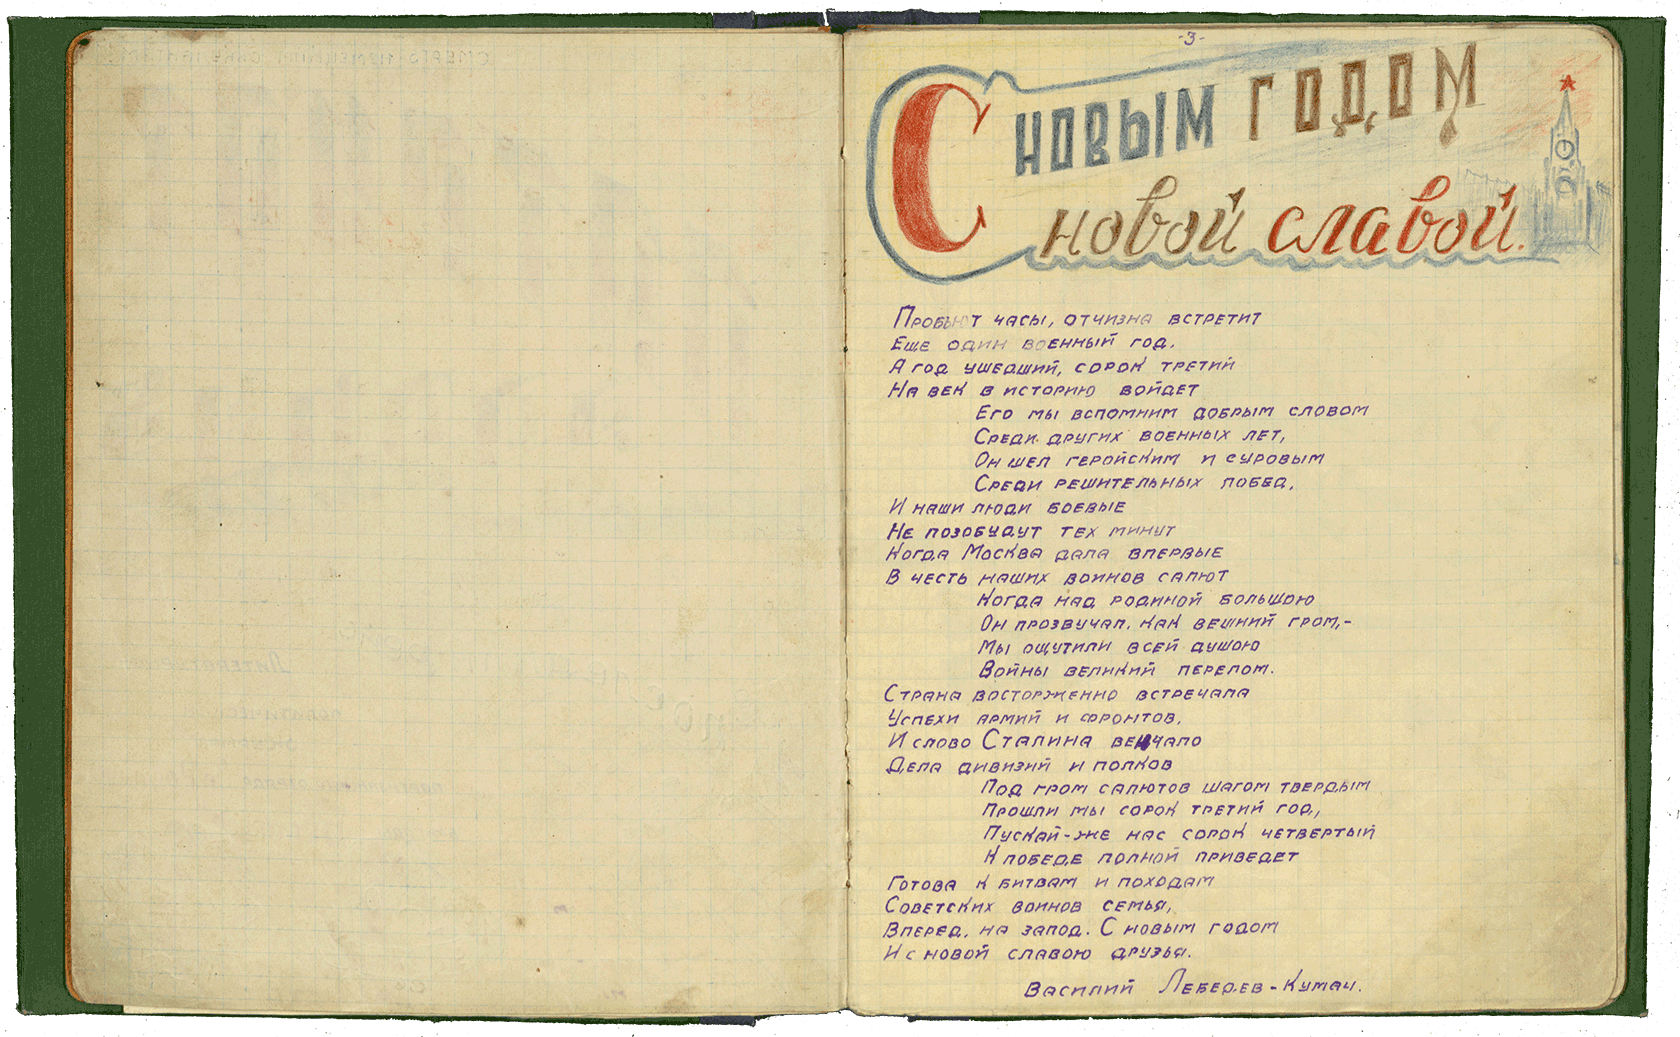 -3-
С НОВЫМ ГОДОМ
С новой славой.
Пробьют часы, отчизна встретит
Еще один военный год.
А год ушедший, сорок третий
На век в историю войдет
Его мы вспомним добрым словом
Среди других военных лет,
Он шел геройским и суровым
Среди решительных побед.
И наши люди боевые
Не позобудут тех минут
Когда Москва дала впервые
В честь наших воинов салют
Когда над родиной большою
Он прозвучал, как вешний гром,-
Мы ощутили всей душою
Войны великий перелом.
Страна восторженно встречала
Успехи армий и фронтов,
И слово Сталина венчало
Дела дивизий и полков
Под гром салютов шагом твердым
Прошли мы сорок третий год,
Пускай-же нас сорок четвертый
К победе полной приведет
Готова к битвам и походам
Советских воинов семья,
Вперед, на запад. С новым годом
И с новой славою друзья.
Василий Лебедев-Кумач.